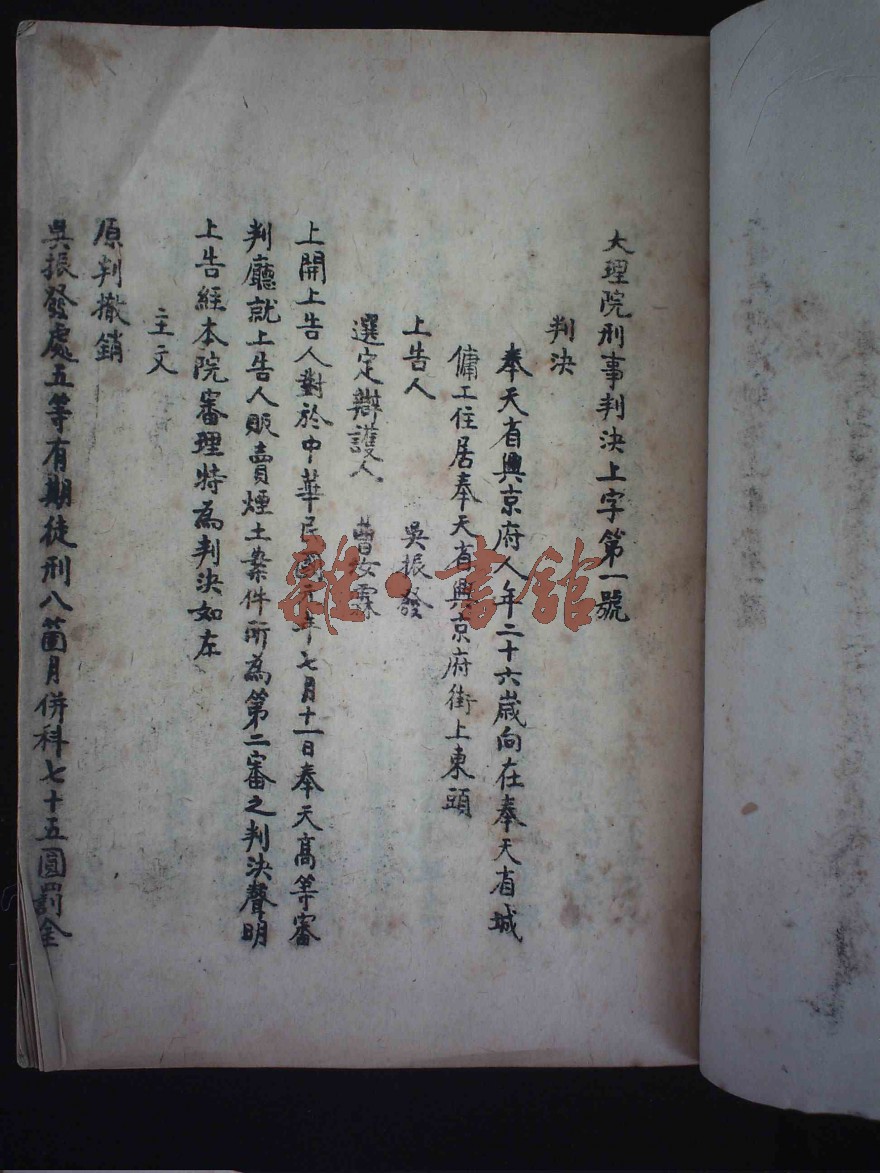 大理院刑事判決上字第一號
判決
奉天省興京府人年二十六歲向在奉天省城
傭工住居奉天省興京府街上東頭
上告人 吳振發
選定辯護人 曹汝霖
上開上告人對於中華民國元年七月十一日奉天高等審
判廳就上告人販賣煙土案件所為第二審之判決聲明
上告經本院審理特為判決如左
主文
原判撤銷
吳振發處五等有期徒刑八箇月併科七十五圓罰金
雜·書館